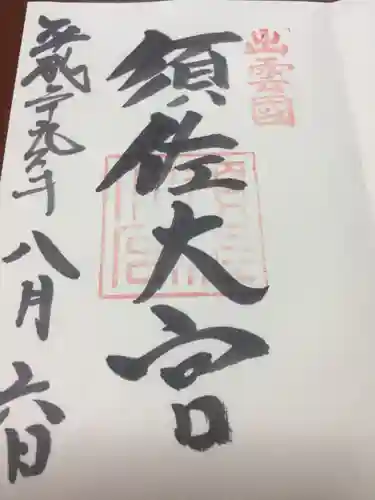 出雲國
須佐大宮
平成二十九年
八月六日